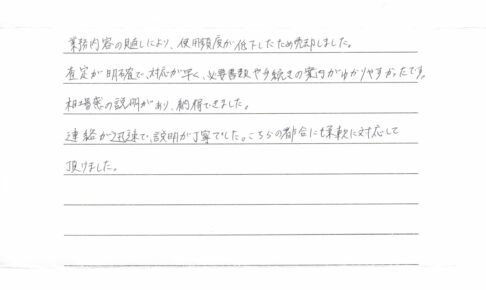 業務内容の見直しにより、使用頻度が低下したため売却しました。
査定が明確で、対応が早く、必要書類や手続きの案内がわかりやすかったです。
相場感の説明があり、納得できました。
連絡が迅速で、説明が丁寧でした。こちらの都合にも柔軟に対応して
頂けました。